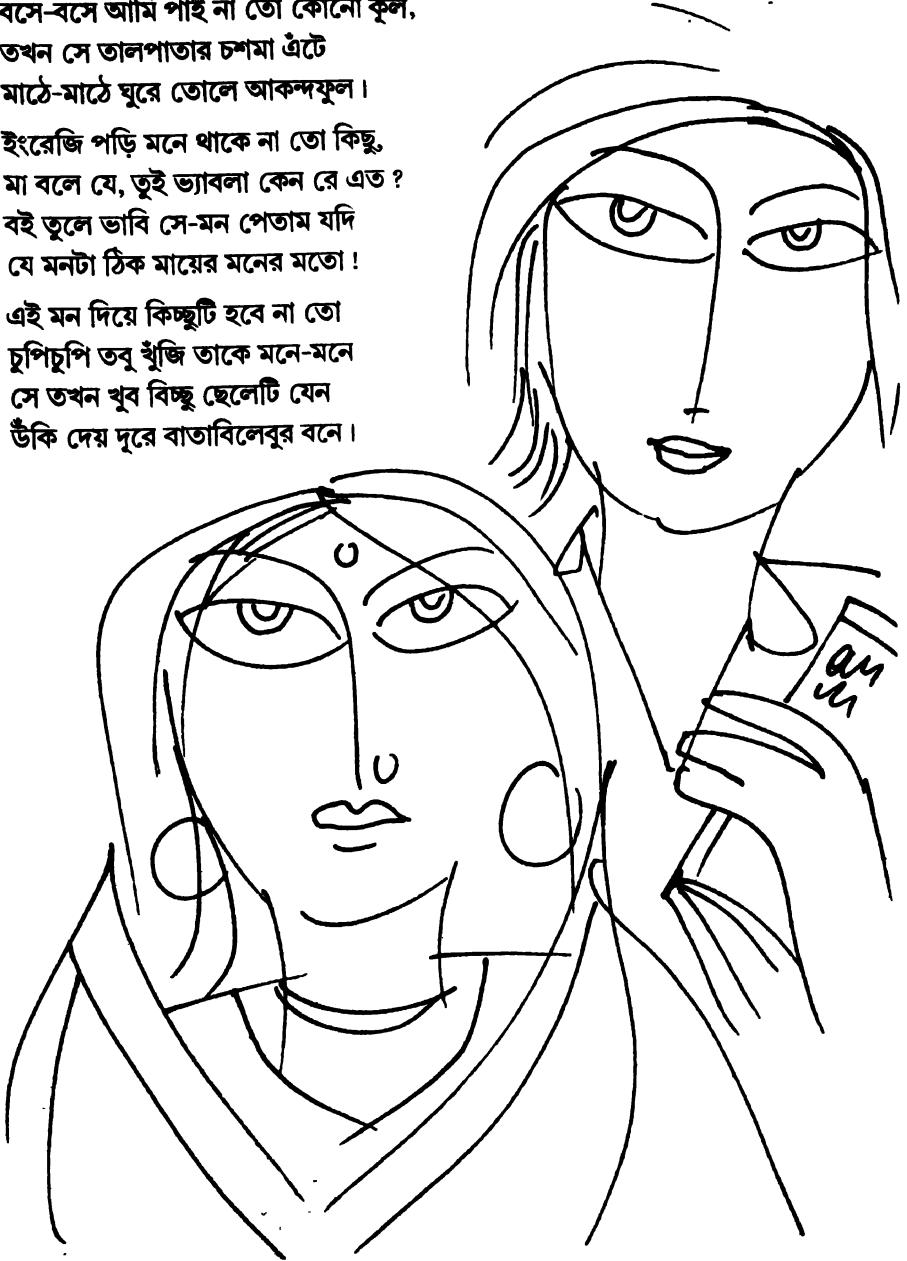 বসে-বসে আমি পাই না তো কোনো কূল,
তখন সে তালপাতার চশমা এঁটে
মাঠে-মাঠে ঘুরে তোলে আকন্দফুল।
ইংরেজি পড়ি মনে থাকে না তো কিছু,
মা বলে যে, তুই ভ্যাবলা কেন রে এত ?
বই তুলে ভাবি সে-মন পেতাম যদি
যে মনটা ঠিক মায়ের মনের মতো !
এই মন দিয়ে কিচ্ছুটি হবে না তো
চুপিচুপি তবু খুঁজি তাকে মনে-মনে
সে তখন খুব বিচ্ছু ছেলেটি যেন
উঁকি দেয় দূরে বাতাবিলেবুর বনে।